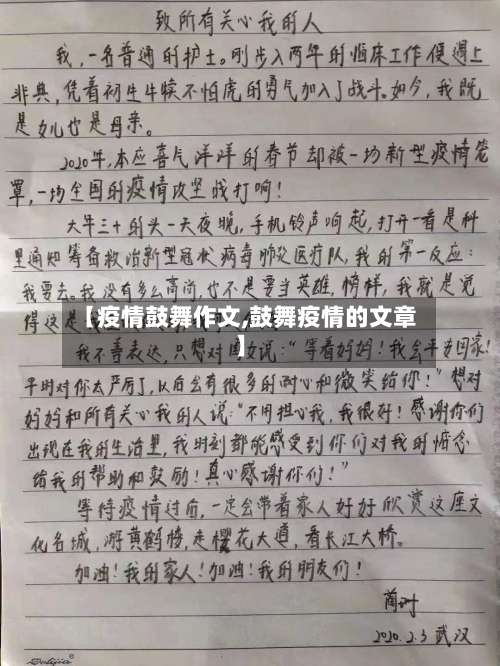 致所有关心我的人
我,一名普通的护士。刚步入两年的临床工作便遇上
非典,凭着初生牛犊不怕虎的勇气加入了战斗。如今,我既
是女儿也是母亲。
2020年,本应喜气洋洋的春节却被一场新型疫情笼
罩,一场全国的疫情攻坚战打响!
大年三十的头一天夜晚,手机铃声响起,打开一看是科
里通知筹备救治新型冠状病毒肺炎医疗队,我的第一反应:
我要去。我没有多么高尚,也不是要当英雄,榜样,我就是觉
得这是
【疫情鼓舞作文,鼓舞疫情的文章
】
我不善表达,只想对女说:“等着妈妈!我会平安回家!
平时对你太严厉了,以后会有很多的耐心和微笑给你!”想对
妈妈和所有关心我的人说:“不用担心我,我很好!感谢你们
出现在我的生活里,我时刻都能感受到你们对我的惦念
给我的帮助和鼓励!真心感谢你们!”
等待疫情过后,一定会带着家人好好欣赏这座文
化名城,游黄鹤楼,走樱花大道,看长江大桥。
加油!我的家人!加油!我的朋友们!
2020.2.3 武汉